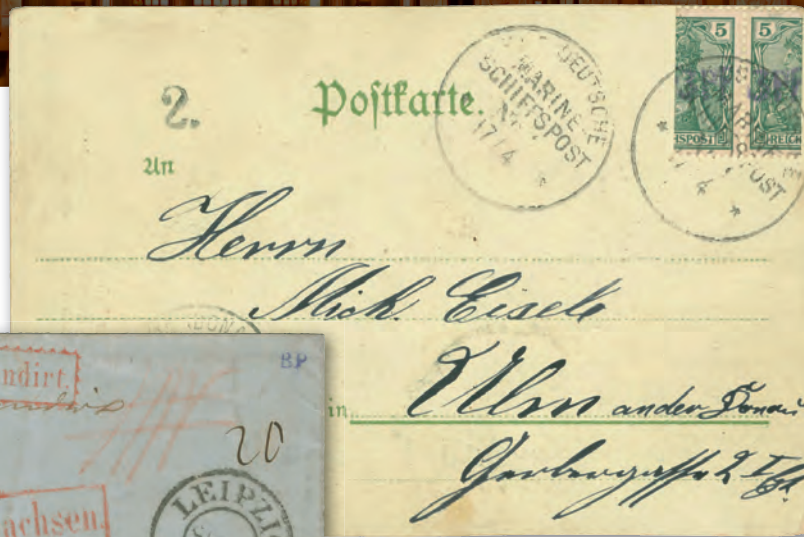 5 5
3PF 3PF
2.
Postkarte.
DEUTSCHE
MARINE
SCHIFFSPOST
17/4
An
Herrn
Mich. Eisele
in Ulm an der Donau
Gerbergasse 2 I
BP
ndirt.
20
LEIPZIG
achsen.